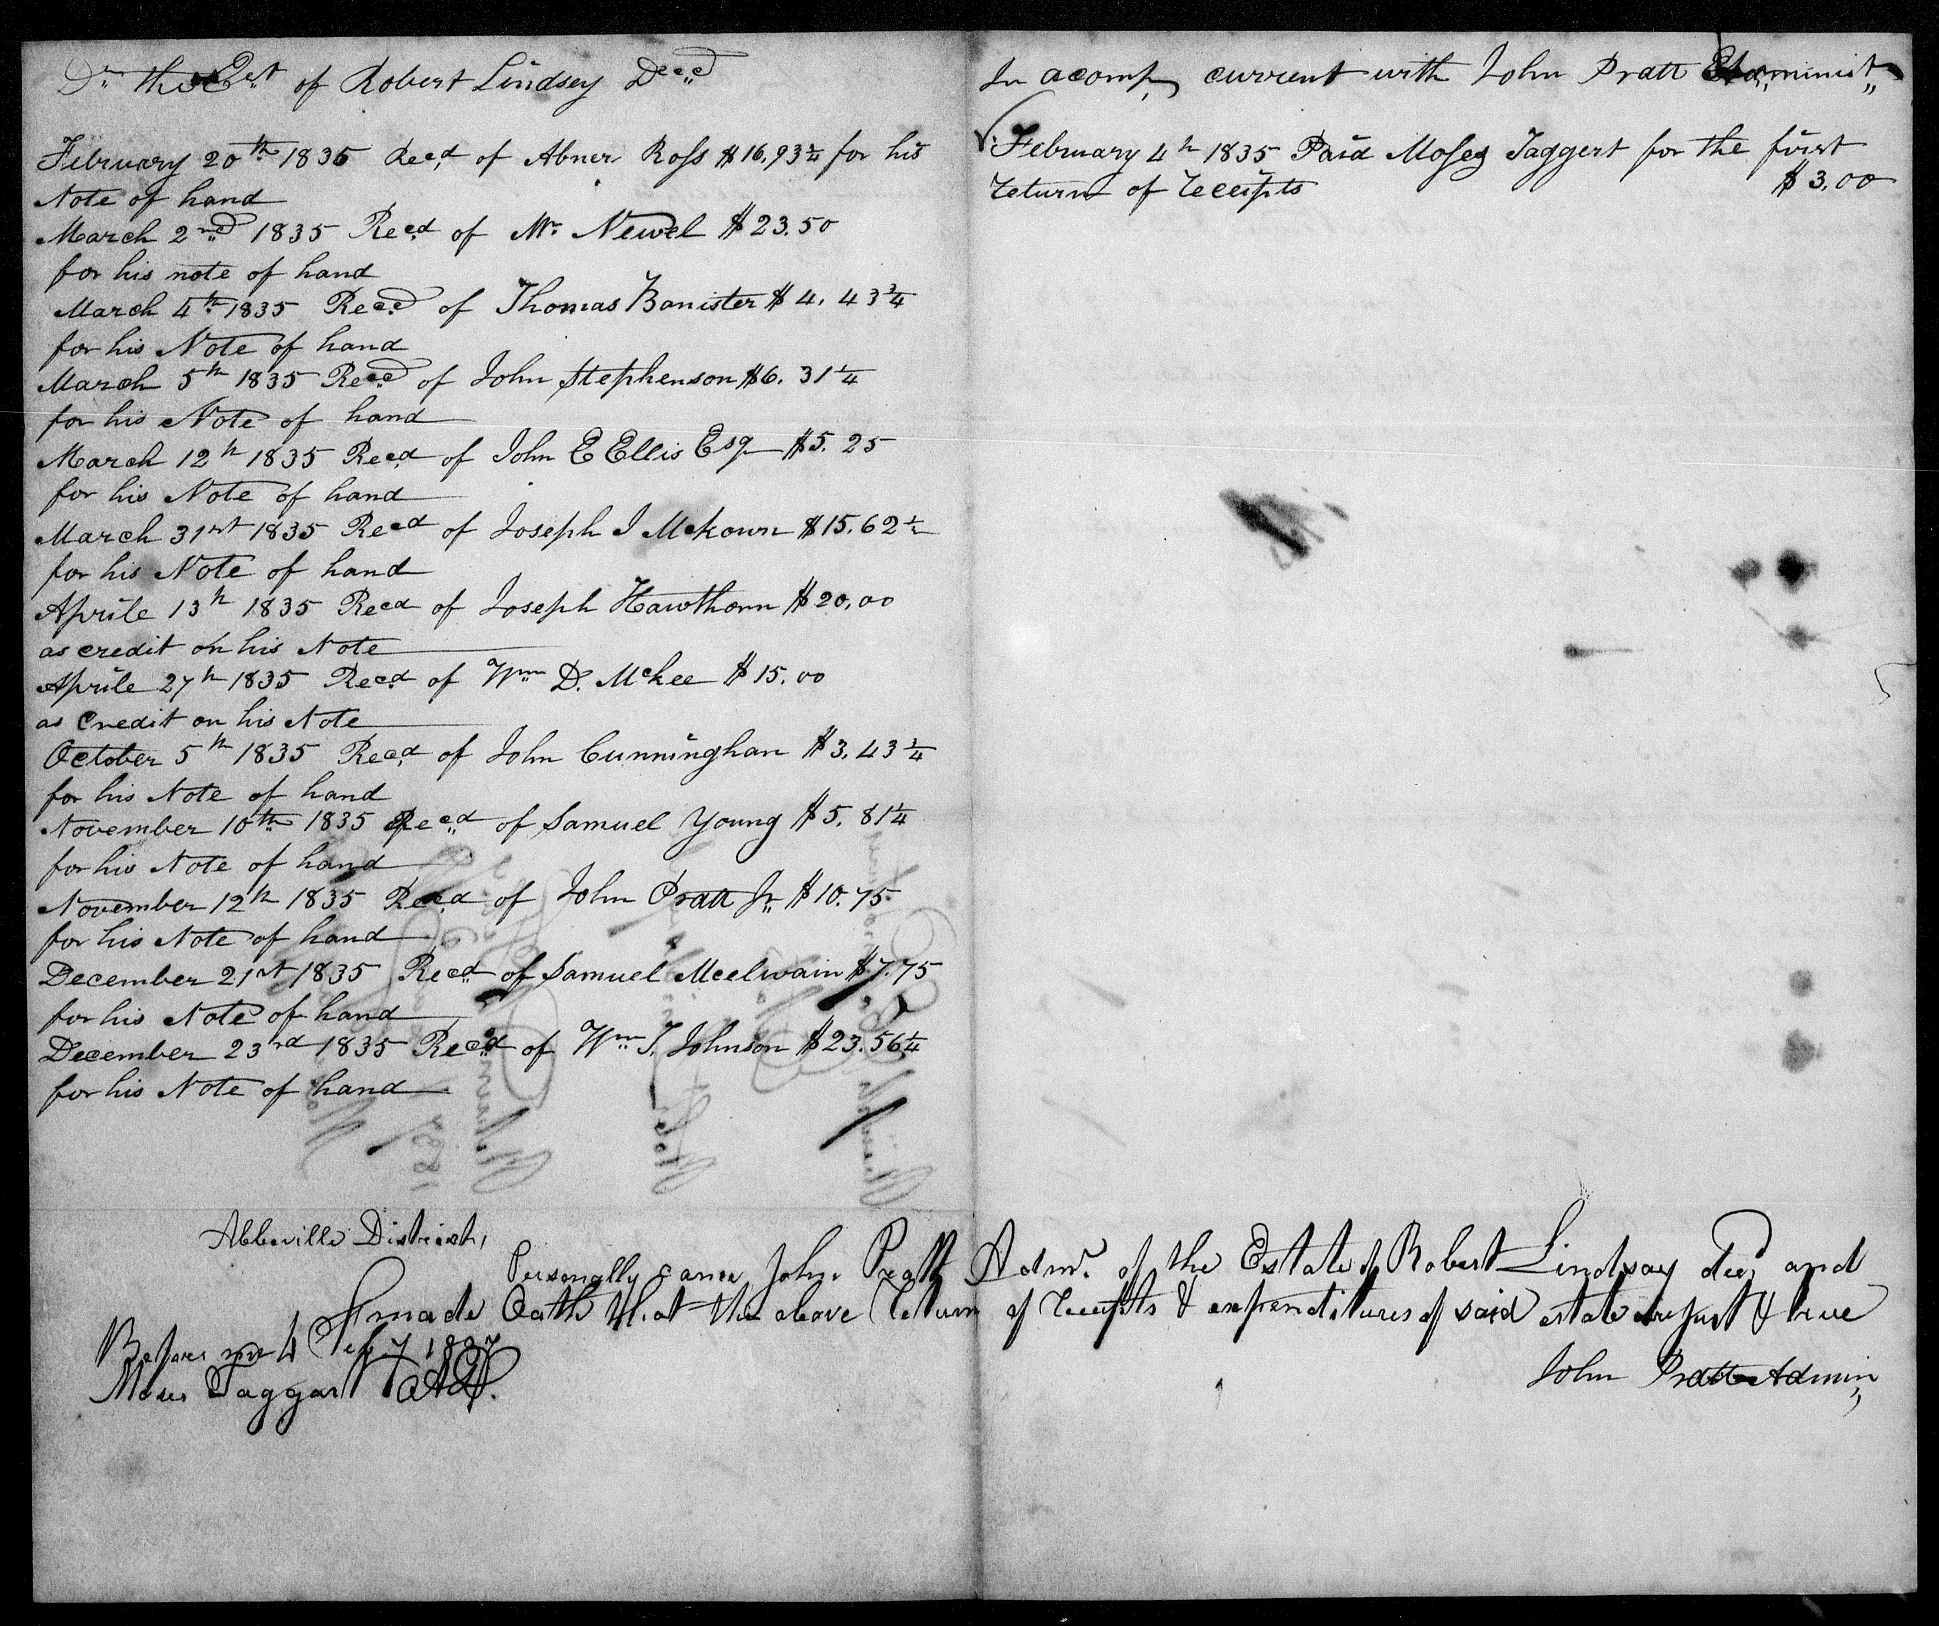 Dr the Est of Robert Lindsey Decd
February 20th 1835 Recd of Abner Ross $16,93¼ for his
Note of hand
March 2nd 1835 Recd of Mr Newel $23.50
for his note of hand
March 4th 1835 Recd of Thomas Banister $4.43¾
for his Note of hand
March 5th 1835 Recd of John Stephenson $6.31¼
for his Note of hand
March 12th 1835 Recd of John E Ellis Esq $5.25
for his Note of hand
March 31st 1835 Recd of Joseph J Mckown $15.62½
for his Note of hand
Aprile 13th 1835 Recd of Joseph Hawthorn $20,00
as credit on his Note
Aprile 27th 1835 Recd of Wm D. McKee $15.00
as Credit on his Note
October 5th 1835 Recd of John Cunninghan $3.43¼
for his Note of hand
November 10th 1835 Recd of Samuel Young $5.81¼
for his Note of hand
November 12th 1835 Recd of John Pratt Jr $10.75
for his Note of hand
December 21st 1835 Recd of Samuel Mcelwain $7.75
for his Note of hand
December 23rd 1835 Recd of Wm T. Johnson $23.56¼
for his Note of hand
In acompt current with John Pratt
February 4th 1835 Paid Moses Taggert for the first
return of receipts $3,00
Abbeville District,
Personally came John Pratt Admr. of the Estate of Robert Lindsay decd and
made Oath that the above return of receipts & expenditures of said estate are just & true
Before me 4 Feby 1837
Moses Taggart O.A.D.
John Pratt Admin